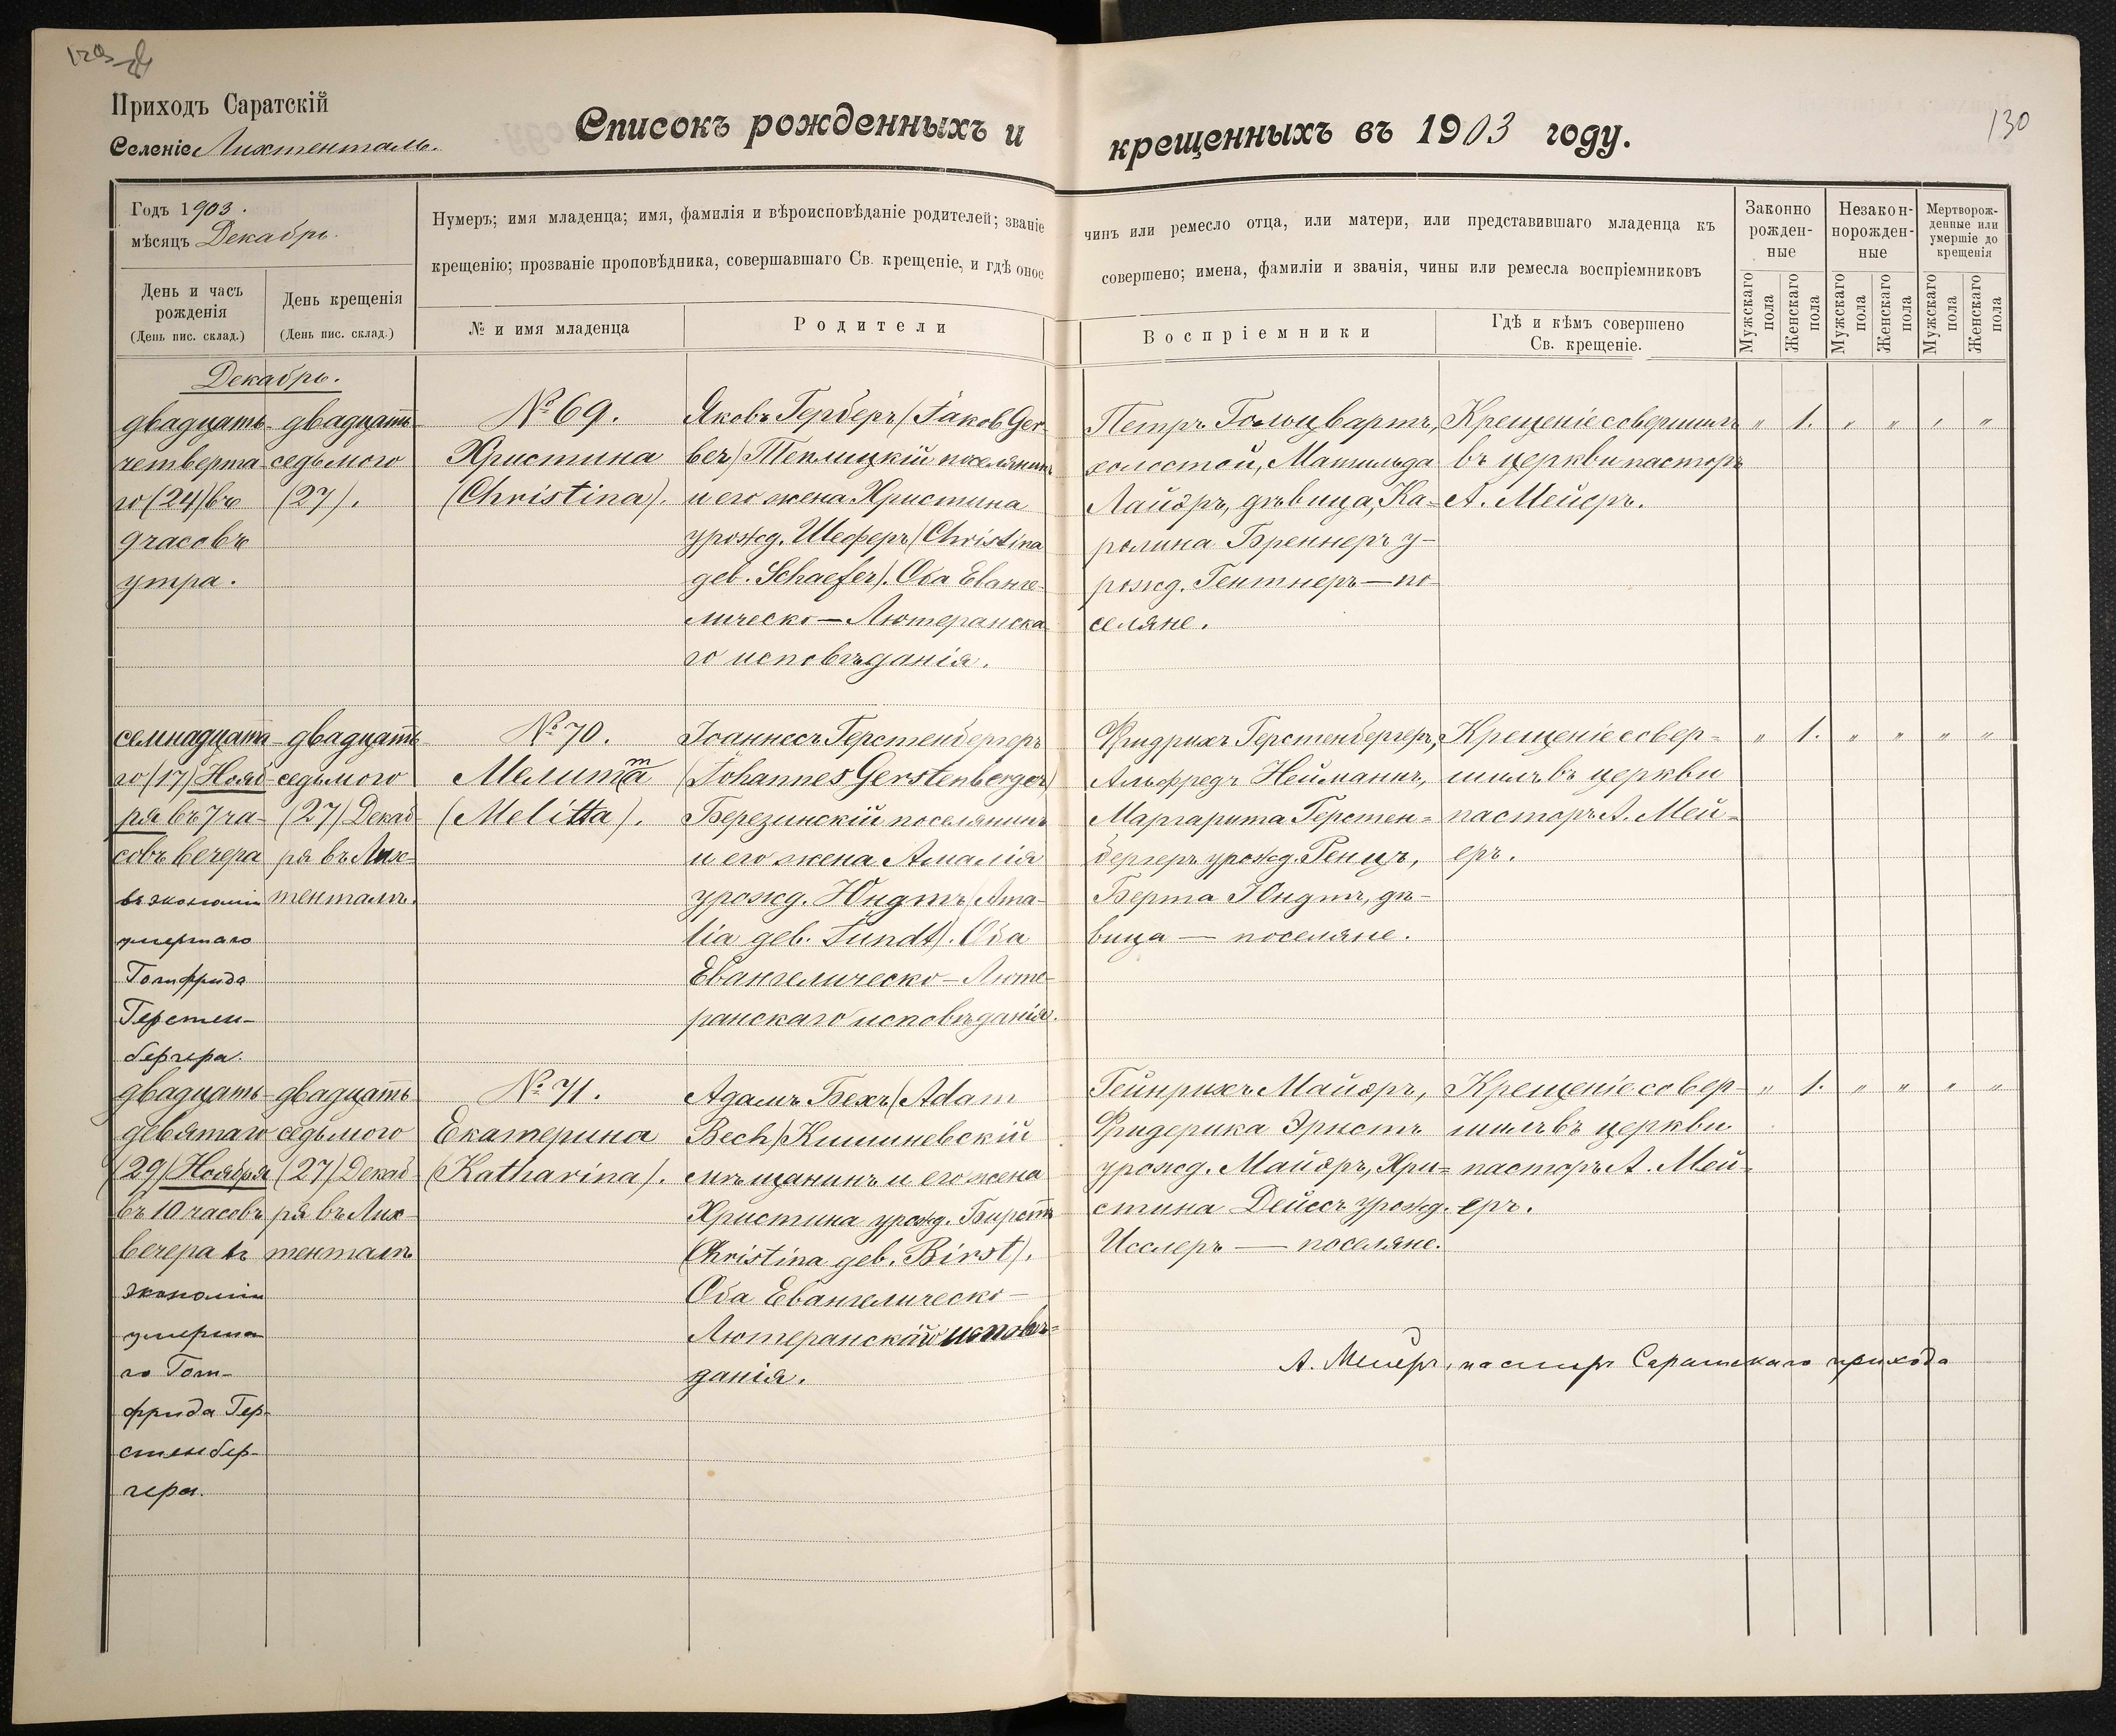 Приходъ Саратскій
Селеніе Лихтенталь.
Списокъ рожденныхъ и крещенныхъ въ 1903 году.
130
Годъ 1903.
мѣсяцъ Декабрь.
Нумеръ; имя младенца; имя, фамилія и вѣроисповѣданіе родителей; званіе чинъ или ремесло отца, или матери, или представившаго младенца къ
крещенію; прозваніе проповѣдника, совершавшаго Св. крещеніе, и гдѣ оное совершено; имена, фамиліи и званія, чины или ремесла воспріемниковъ
День и часъ
рожденія
(День пис. склад.)
День крещенія
(День пис. склад.)
№ и имя младенца
Родители
Воспріемники
Гдѣ и кѣмъ совершено
Св. крещеніе.
Законно
рожден-
ные
Незакон-
норожден-
ные
Мертворож-
денные или
умершіе до
крещенія
Мужскаго
пола
Женскаго
пола
Мужскаго
пола
Женскаго
пола
Мужскаго
пола
Женскаго
пола
Декабрь.
двадцать
четверта
го (24) въ
9 часовъ
утра.
двадцать
седьмого
(27).
№ 69.
Христина
(Christina).
Яковъ Герберъ (Jakob Ger-
ber) Теплицкій поселянинъ
и его жена Христина
урожд. Шеферъ (Christina
geb. Schaefer). Оба Еванге-
лическо-Лютеранска
го исповѣданія.
Петръ Гольцвартъ,
холостой, Матильда
Лайэръ, дѣвица, Ка-
ролина Бреннеръ у-
рожд. Гентнеръ — по
селяне.
Крещеніе совершилъ
въ церкви пасторъ
А. Мейеръ.
" 1. " " " "
семнадцата
го (17) Нояб-
ря въ 7 ча-
совъ вечера
въ экономіи
умершаго
Готфрида
Герстен-
бергера.
двадцать
седьмого
(27) Декаб
ря въ Лих-
тенталѣ.
№ 70.
Мелитта
(Melitta).
Іоаннесъ Герстенбергеръ
(Johannes Gerstenberger)
Березинскій поселянинъ
и его жена Амалія
урожд. Юндтъ (Ama-
lia geb. Jundt). Оба
Евангелическо-Люте-
ранскаго исповѣданія.
Фридрихъ Герстенбергеръ,
Альфредъ Нейманнъ,
Маргарита Герстен-
бергеръ урожд. Ренцъ,
Берта Юндтъ, дѣ-
вица — поселяне.
Крещеніе совер-
шилъ въ церкви
пасторъ А. Мей-
еръ.
" 1. " " " "
двадцать
девятаго
(29) Ноября
въ 10 часовъ
вечера въ
экономіи
умерша
го Гот-
фрида Гер-
стенбер-
гера.
двадцать
седьмого
(27) Декаб
ря въ Лих
тенталѣ
№ 71.
Екатерина
(Katharina).
Адамъ Бехъ (Adam
Bech) Кишиневскій
мѣщанинъ и его жена
Христина урожд. Бирстъ
(Christina geb. Birst).
Оба Евангелическо-
Лютеранскаго исповѣ-
данія.
Гейнрихъ Майэръ,
Фридерика Эрнстъ
урожд. Майэръ, Хри-
стина Дейссъ урожд.
Исслеръ — поселяне.
Крещеніе совер-
шилъ въ церкви
пасторъ А. Мей-
еръ.
" 1. " " " "
А. Мейеръ, пасторъ Саратскаго прихода